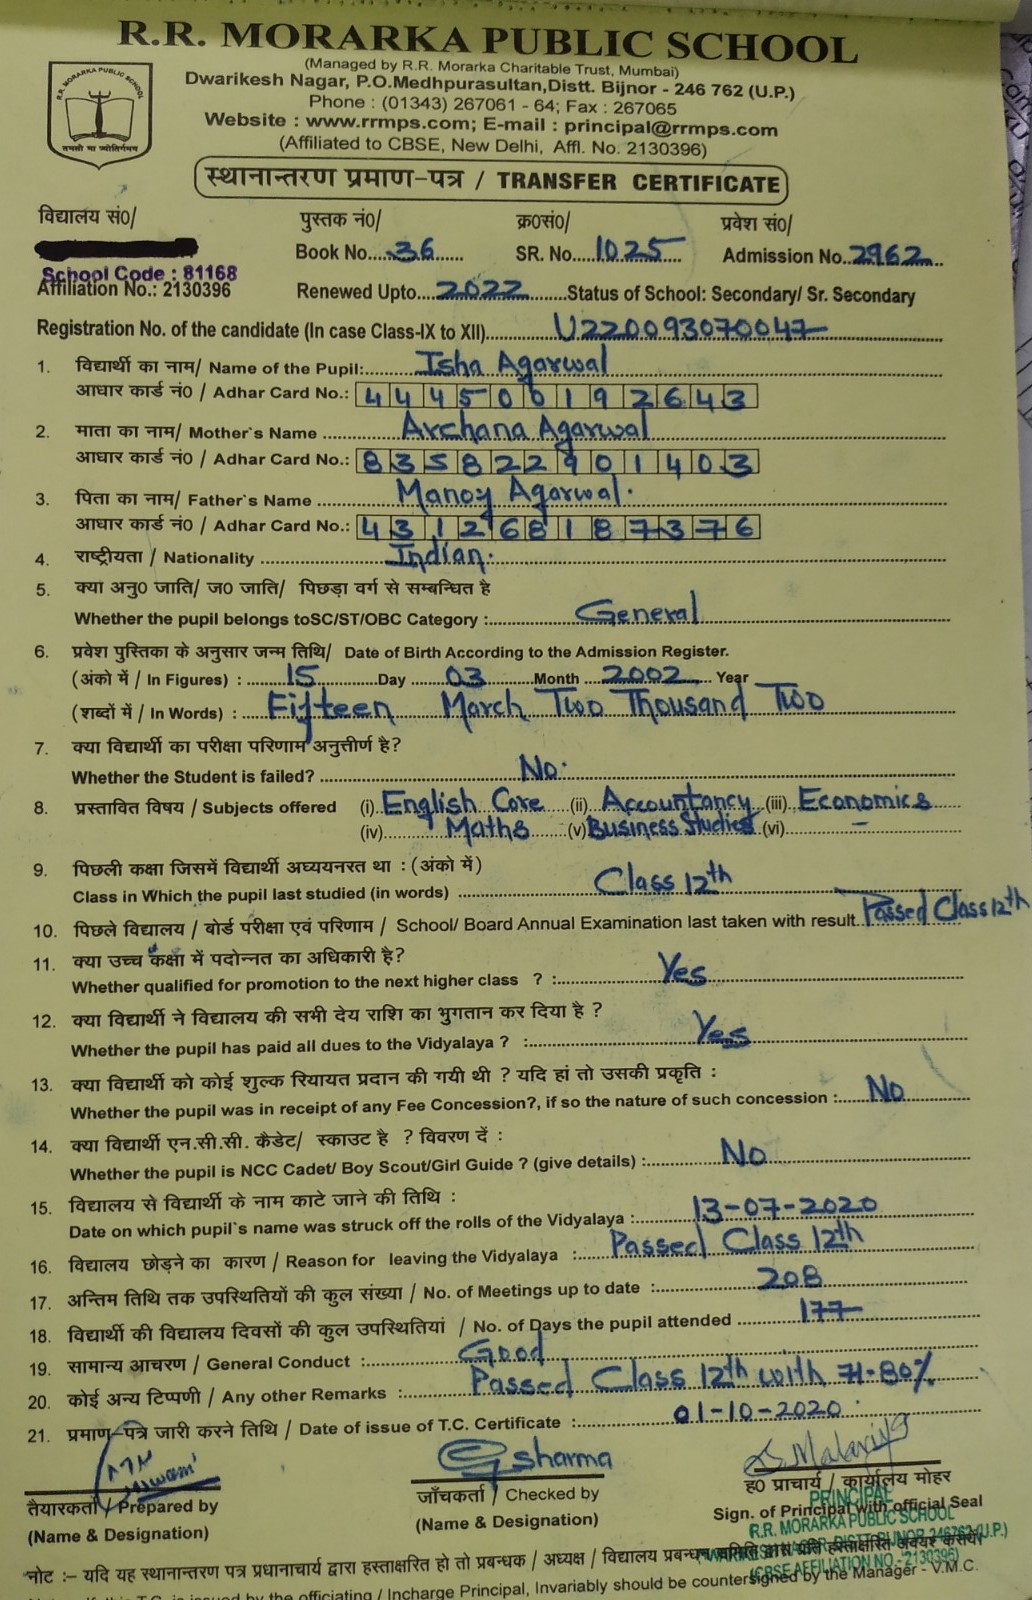 R.R. MORARKA PUBLIC SCHOOL
(Managed by R.R. Morarka Charitable Trust, Mumbai)
Dwarikesh Nagar, P.O.Medhpurasultan,Distt. Bijnor - 246 762 (U.P.)
Phone : (01343) 267061 - 64; Fax : 267065
Website : www.rrmps.com; E-mail : principal@rrmps.com
(Affiliated to CBSE, New Delhi, Affl. No. 2130396)
R.R. MORARKA PUBLIC SCHOOL
तमसो मा ज्योतिर्गमय
स्थानान्तरण प्रमाण-पत्र / TRANSFER CERTIFICATE
विद्यालय सं0/ पुस्तक नं0/ क्र0सं0/ प्रवेश सं0/
Book No. 36 SR. No. 1025 Admission No. 2962
School Code : 81168
Affiliation No.: 2130396 Renewed Upto 2022 Status of School: Secondary/ Sr. Secondary
Registration No. of the candidate (In case Class-IX to XII) U220093070047
1. विद्यार्थी का नाम/ Name of the Pupil: Isha Agarwal
आधार कार्ड नं0 / Adhar Card No.: 444500192643
2. माता का नाम/ Mother`s Name Archana Agarwal
आधार कार्ड नं0 / Adhar Card No.: 835822901403
3. पिता का नाम/ Father`s Name Manoj Agarwal.
आधार कार्ड नं0 / Adhar Card No.: 431268187376
4. राष्ट्रीयता / Nationality Indian.
5. क्या अनु0 जाति/ ज0 जाति/ पिछड़ा वर्ग से सम्बन्धित है
Whether the pupil belongs toSC/ST/OBC Category : General
6. प्रवेश पुस्तिका के अनुसार जन्म तिथि/ Date of Birth According to the Admission Register.
(अंको में / In Figures) : 15 Day 03 Month 2002 Year
(शब्दों में / In Words) : Fifteen March Two Thousand Two
7. क्या विद्यार्थी का परीक्षा परिणाम अनुत्तीर्ण है?
Whether the Student is failed? No.
8. प्रस्तावित विषय / Subjects offered (i) English Core (ii) Accountancy (iii) Economics
(iv) Maths (v) Business Studies (vi) –
9. पिछली कक्षा जिसमें विद्यार्थी अध्ययनरत था : (अंको में)
Class in Which the pupil last studied (in words) Class 12th
10. पिछले विद्यालय / बोर्ड परीक्षा एवं परिणाम / School/ Board Annual Examination last taken with result. Passed Class 12th
11. क्या उच्च कक्षा में पदोन्नत का अधिकारी है?
Whether qualified for promotion to the next higher class ? : Yes
12. क्या विद्यार्थी ने विद्यालय की सभी देय राशि का भुगतान कर दिया है ?
Whether the pupil has paid all dues to the Vidyalaya ? : Yes
13. क्या विद्यार्थी को कोई शुल्क रियायत प्रदान की गयी थी ? यदि हां तो उसकी प्रकृति :
Whether the pupil was in receipt of any Fee Concession?, if so the nature of such concession : No
14. क्या विद्यार्थी एन.सी.सी. कैडेट/ स्काउट है ? विवरण दें :
Whether the pupil is NCC Cadet/ Boy Scout/Girl Guide ? (give details) : No
15. विद्यालय से विद्यार्थी के नाम काटे जाने की तिथि :
Date on which pupil`s name was struck off the rolls of the Vidyalaya : 13-07-2020
16. विद्यालय छोड़ने का कारण / Reason for leaving the Vidyalaya : Passed Class 12th
17. अन्तिम तिथि तक उपस्थितियों की कुल संख्या / No. of Meetings up to date : 208
18. विद्यार्थी की विद्यालय दिवसों की कुल उपस्थितियां / No. of Days the pupil attended 177
19. सामान्य आचरण / General Conduct : Good
20. कोई अन्य टिप्पणी / Any other Remarks : Passed Class 12th with 71.80%
21. प्रमाण-पत्र जारी करने तिथि / Date of issue of T.C. Certificate : 01-10-2020
sharma
तैयारकर्ता / Prepared by जाँचकर्ता / Checked by ह0 प्राचार्य / कार्यालय मोहर
(Name & Designation) (Name & Designation) Sign. of Principal with official Seal
PRINCIPAL
R.R. MORARKA PUBLIC SCHOOL
DISTT. BIJNOR-246762 (U.P.)
(CBSE AFFILIATION NO.-2130396)
नोट :– यदि यह स्थानान्तरण पत्र प्रधानाचार्य द्वारा हस्ताक्षरित हो तो प्रबन्धक / अध्यक्ष / विद्यालय प्रबन्धन समिति द्वारा प्रति हस्ताक्षरित
this T.C. is issued by the officiating / Incharge Principal, Invariably should be countersigned by the Manager - V.M.C.